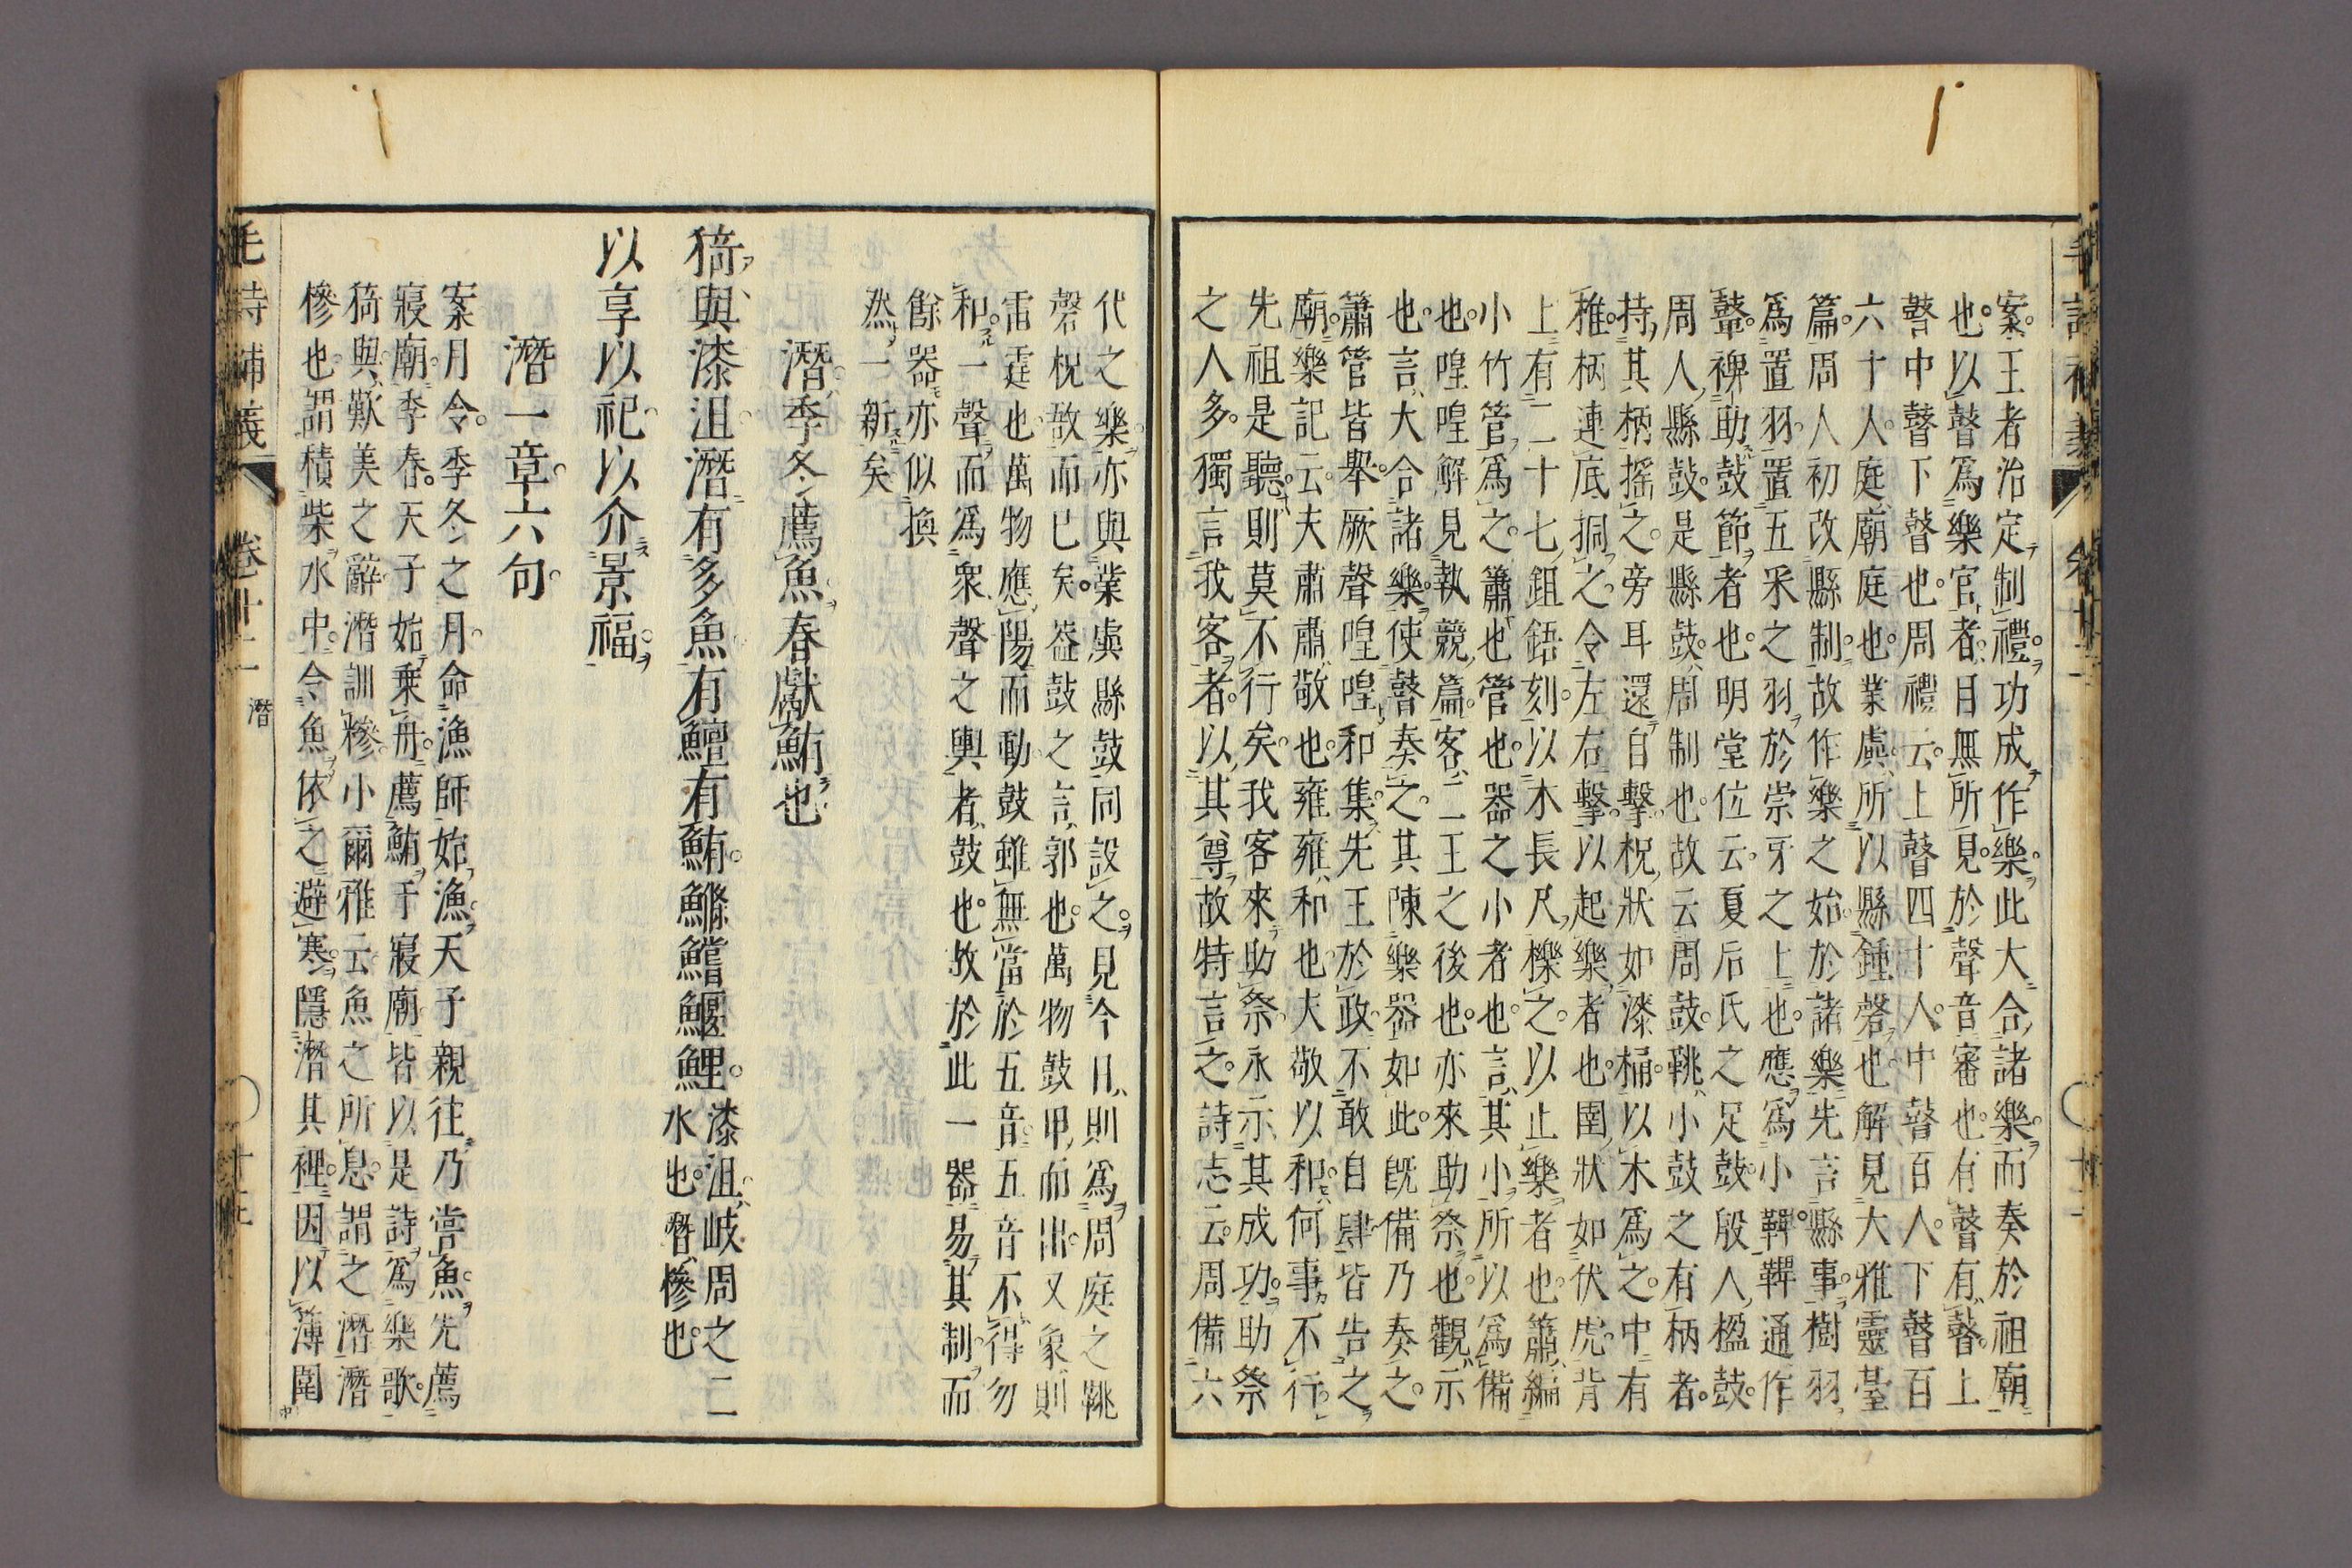 案王者治定制禮功成作樂此大合諸樂而奏於祖廟
也以瞽爲樂官者目無所見於聲音審也有瞽有瞽上
瞽中瞽下瞽也周禮云上瞽四十人中瞽百人下瞽百
六十人庭廟庭也業虡所以縣鍾磬也解見大雅靈臺
篇周人初改縣制故作樂之始於諸樂先言縣事樹羽
爲置羽置五采之羽於崇牙之上也應爲小鞞鞞通作
鼙裨助鼓節者也明堂位云夏后氏之足鼓殷人楹鼓
周人縣鼓是縣鼓周制也故云周鼓鞉小鼓之有柄者
持其柄搖之旁耳還自擊柷狀如漆桶以木爲之中有
椎柄連底挏之令左右擊以起樂者也圉狀如伏虎背
上有二十七鉏鋙刻以木長尺櫟之以止樂者也簫編
小竹管爲之簫也管也器之小者也言其小所以爲備
也喤喤解見執競篇客二王之後也亦來助祭也觀示
也言大合諸樂使瞽奏之其陳樂器如此旣備乃奏之
簫管皆舉厥聲喤喤和集先王於政不敢自肆皆告之
廟樂記云夫肅肅敬也雍雍和也夫敬以和何事不行
先祖是聽則莫不行矣我客來助祭永示其成功助祭
之人多獨言我客者以其尊故特言之詩志云周備六
代之樂亦與業虡縣鼓同設之見今日則爲周庭之鞉
磬柷敔而已矣葢鼓之言郭也萬物鼓甲而出又象則
雷霆也萬物應陽而動鼓雖無當於五音五音不得勿
和一聲而爲衆聲之輿者鼓也故於此一器易其制而
餘器亦似換
然一新矣
潛季冬薦魚春獻鮪也
猗與漆沮潛有多魚有鱣有鮪鰷鱨鰋鯉漆沮岐周之二
水也潛槮也
以享以祀以介景福
潛一章六句
案月令季冬之月命漁師始漁天子親往乃嘗魚先薦
寢廟季春天子始乗舟薦鮪于寢廟皆以是詩爲樂歌
猗與歎美之辭潛訓糝小爾雅云魚之所息謂之潛潛
槮也謂積柴水中令魚依之避寒隱潛其裡因以薄圍
毛詩補義
卷十二
潛